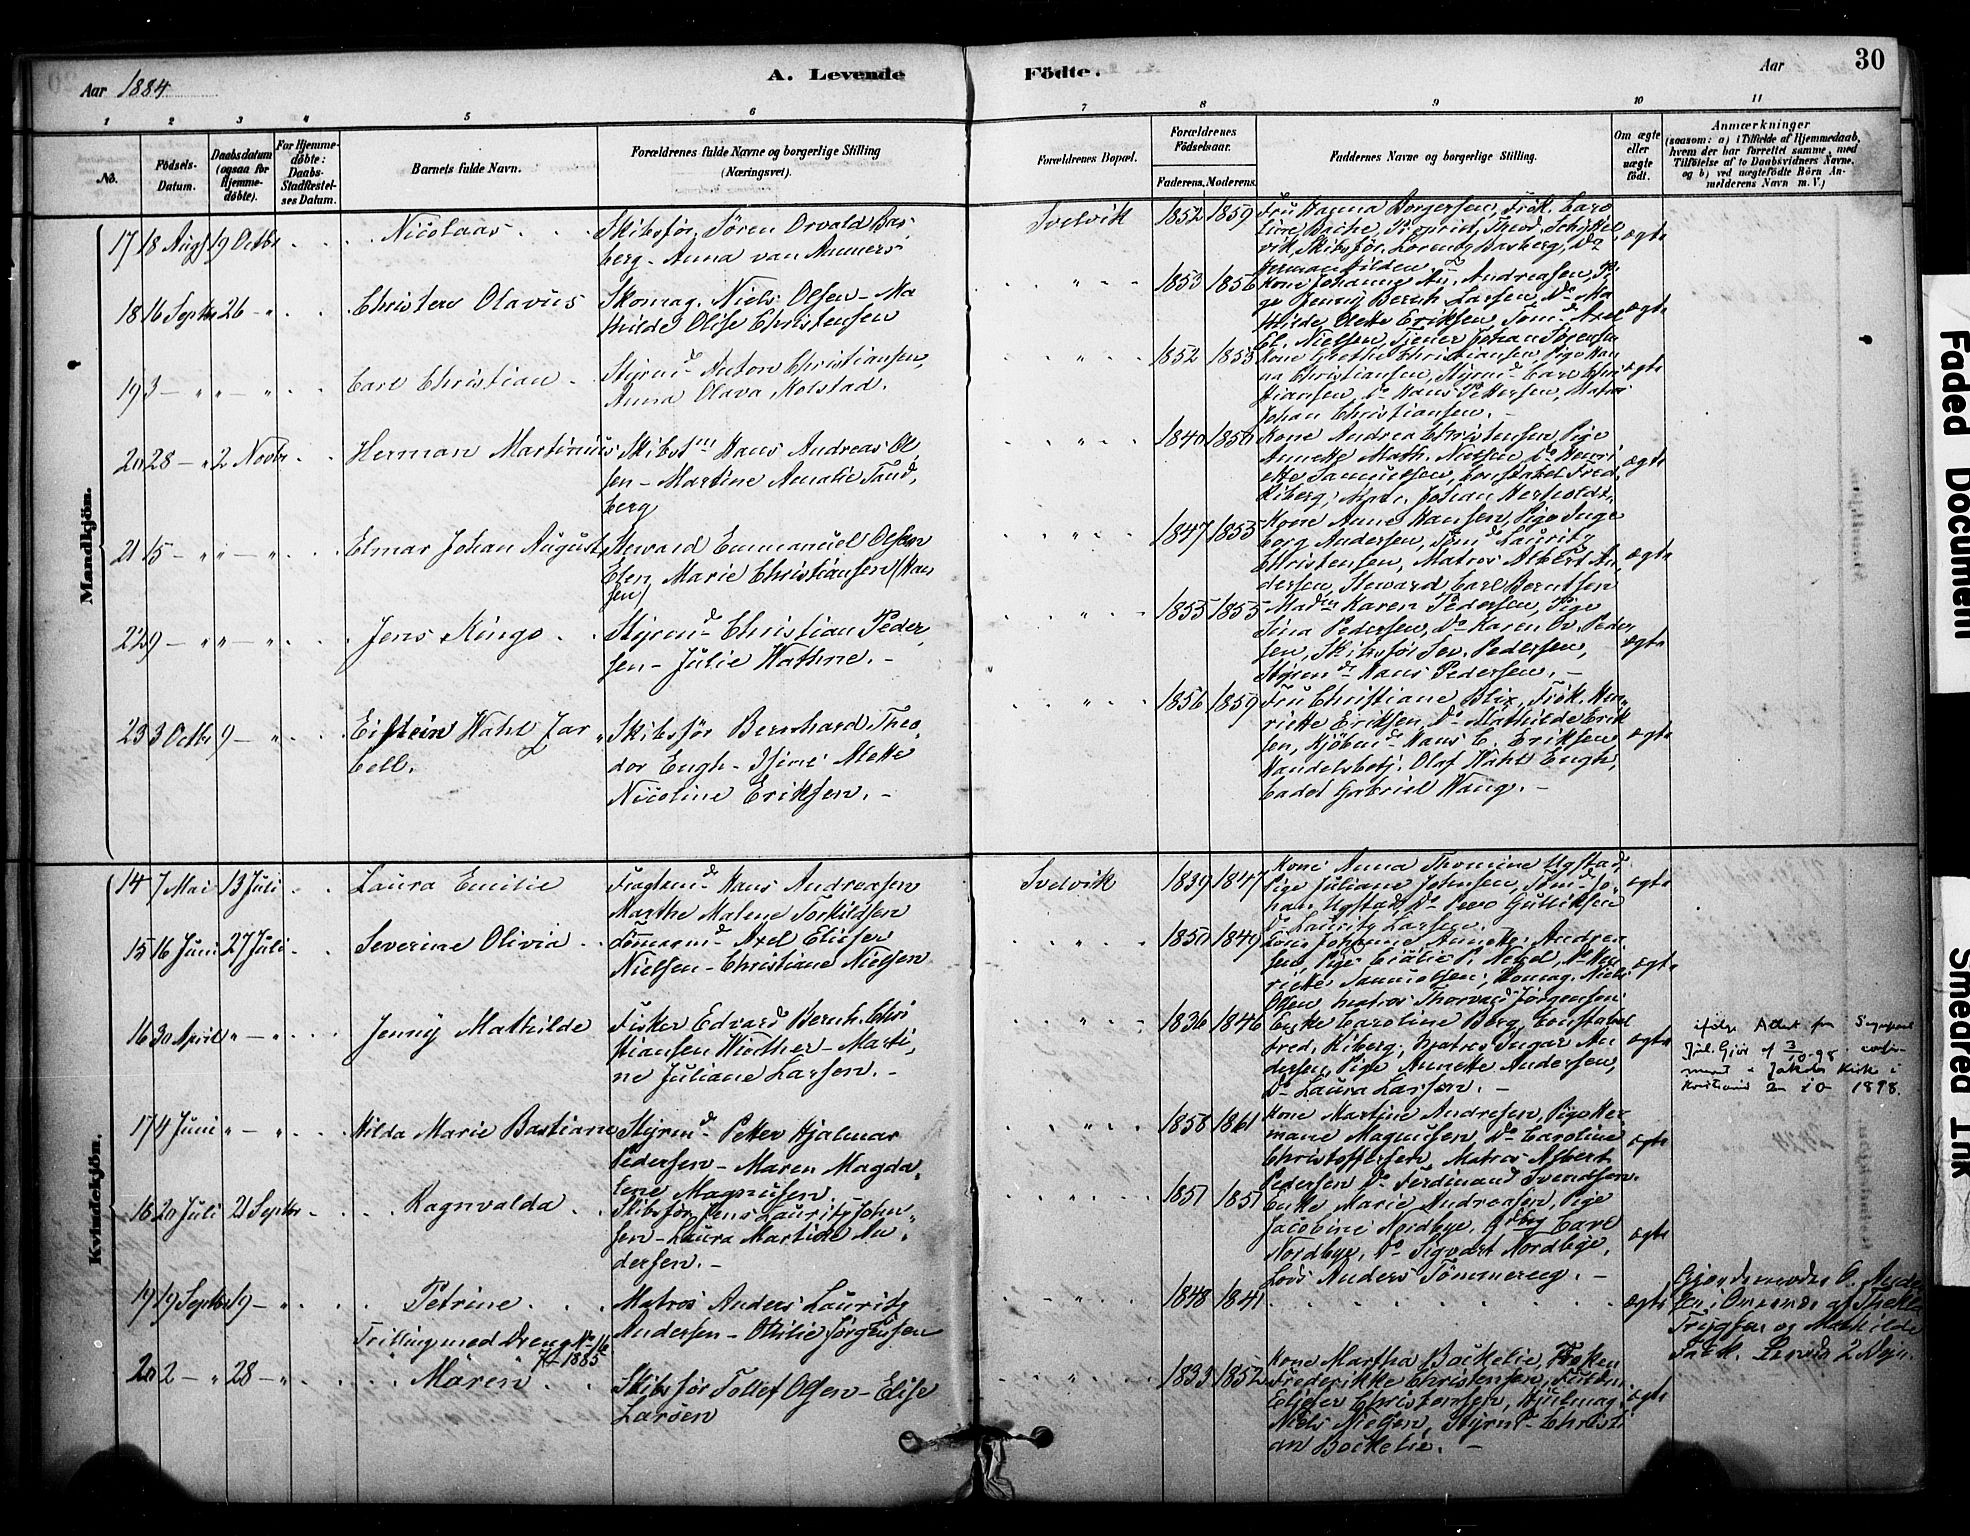 Aar 1884
A. Levende Födte.
Aar
30
1 2 3 4 5 6 7 8 9 10 11
No.
Födsels-Datum.
Daabsdatum (ogsaa for Hjemme-döbte).
For Hjemme-döbte: Daabs-Stadfæstel-ses Datum.
Barnets fulde Navn.
Forældrenes fulde Navne og borgerlige Stilling (Næringsvei).
Forældrenes Bopæl.
Forældrenes Födselsaar.
Faderens. Moderens.
Faddernes Navne og borgerlige Stilling.
Om ægte eller uægte födt.
Anmærkninger
(saasom: a) i Tilfælde af Hjemmedaab, hvem der har forrettet samme, med Tilföielse af to Daabsvidners Navne, og b) ved uægtefödte Börn An-melderens Navn m. V.)
Mandkjön.
17 18 Augs 19 Octbr Nicolaas Skibsför. Sören Orvald Bas
berg - Anna van Anners
Svelvik 1852 1859 Fru Hagma Borgersen, Frök. Caro
line Bache,
vik, Skibsför. Lorends Basberg, Do
Herman Hilden
ægte
18 16 Septbr 26 - " Christen Olavus Skomag. Niels Olsen - Ma
thilde Olise Christensen
" 1853 1856 Kone Johanne An. Andreasen, Pi
ge Jenny Bernh. Larsen, Do Ma
thilde Olette Eriksen, Tömd Axel
El. Nielsen, Tjener Johan Sörensen
ægte
19 3 - " " - " Carl Christian Styrmd Anton Christiansen,
Anna Olava Molstad.
" 1852 1853 Kone Grethe Christiansen, Pige Han
na Christiansen, Styrmd Carl Chri
stiansen, Do Hans Pettersen, Matros
Johan Christiansen. -
ægte
20 28 - " 2 Novbr Herman Martinius Skibstm Hans Andreas Ol
sen - Martine Amalie Sand,
berg
" 1840 1850 Kone Andrea Christensen, Pige
Annette Math. Nielsen, Do Henri
ette Samuelsen, Constabel Fred.
Kiberg, Johan Herfoldt.
ægte
21 15 - " " - " Elmar Johan August Steward Emmanuel Olsen
Elen Marie Christiansen (Han
sen)
" 1847 1853 Kone Anne Hansen, Pige Inge
borg Andersen, Tömd Lauritz
Christensen, Matros Albert An
dersen, Steward Carl Berntsen
ægte
22 9 - " " - " Jens Kingo Styrmd Christian Peder
sen - Julie Wathne. -
" 1855 1855 Madm Karen Pedersen, Pige
Sina Pedersen, Do Karen Ov. Peder
sen, Skibsför Sev. Pedersen,
Styrmd Hans Pedersen. -
ægte
23 3 Octbr 9 - " Eistein Wahl Jar
bell.
Skibsför Bernhard Theo
dor Engh - Mette
Nicoline Eriksen. -
" 1856 1859 Fru Christiane Blix, Frök. Hen
riette Eriksen, Do Mathilde Erik
sen, Kjöbmd Hans C. Eriksen
Handelsbetj. Olaf Wahl Engh,
Cadet Gabriel Wang. -
ægte
Kvindekjön.
14 7 Mai 13 Juli Laura Emilie Fragtemd Hans Andreasen
Marthe Malene Torkildsen
Svelvik 1839 1847 Kone Anna Thomine Ugstad,
Pige Juliane Johnsen, Tömd Jo
han Ugstad, Do Peer Gulliksen
Do Lauritz Larsen.
ægte
15 16 Juni 27 Juli Severine Olivia Tömmermd Axel Elieser
Nielsen - Christiane Nielsen
" 1850 1849 Kone Johanne Annette Andrea
sen, Pige P. Do Hen
riette Samuelsen, Skomag. Niels
Olsen, Matros Thorvald Jörgensen
ægte
16 30 April " - " Jenny Mathilde Fisker Edvard Bernh. Chri
stiansen Winther - Marti,
ne Juliane Larsen. -
" 1836 1846 Enke Caroline Berg, Constabel
Fred. Kiberg, Matros Ingar An
dersen, Pige Annette Andersen,
Do Laura Larsen. -
ægte
ifølge Attest fra Sognepræst
Jul. Gjör af 3/10 98 confir
meret i Jakobs Kirk i
Kristiania 2 10 1898.
17 4 Juni " - " Hilda Marie Bastiane Styrmd Petter Hjalmar
Pedersen - Maren Magda
lene Magnusen.
" 1858 1861 Kone Martine Andresen, Pige Her
mane Magnusen, Do Caroline
Christoffersen, Matros Albert
Pedersen, Do Ferdinand Svendsen.
ægte
18 20 Juli 21 Septbr Ragnvalda Skibsför Jens Lauritz John
sen - Laura Martide An
dersen. -
" 1851 1851 Enke Marie Andreasen, Pige
Jacobine Nordbye, Carl
Nordbye, Do Sigvart Nordbye,
Lods Anders Tömmeraeg. -
ægte
19 19 Septbr 19 - " Petrine
Trilling med Dreng No 16
1885
Matros Anders Lauritz
Andersen - Othilie Jørgensen
" 1848 1841 ægte
Gjordemoder O. Ande
sen i Overvær af Thekla
Trygsen og Mathilde
Falck. Levede 2 Dage.
20 2 - " 28 - " Maren Skibsför Tollef Olsen - Elise
Larsen
" 1833 1852 Kone Martha Bockelie, Frøken
Frederikke Christensen,
Elieser Christensen, Hjulmag.
Niels Nielsen, Styrmd Christi
an Bockelie. -
ægte
Faded Document
Smeared Ink